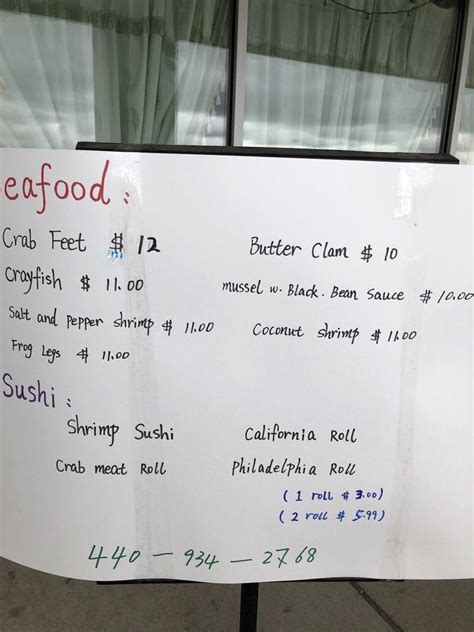 eafood :
Crab Feet $ 12
Butter Clam $ 10
Crayfish $ 11.00
mussel w. Black. Bean Sauce $ 10.00
Salt and Pepper shrimp $ 11.00
Coconut shrimp $ 11.00
Frog Legs $ 11.00
Sushi :
Shrimp Sushi
California Roll
Crab meat Roll
Philadelphia Roll
( 1 roll $ 3.00)
( 2 roll $ 5.99)
440 - 934 - 2768